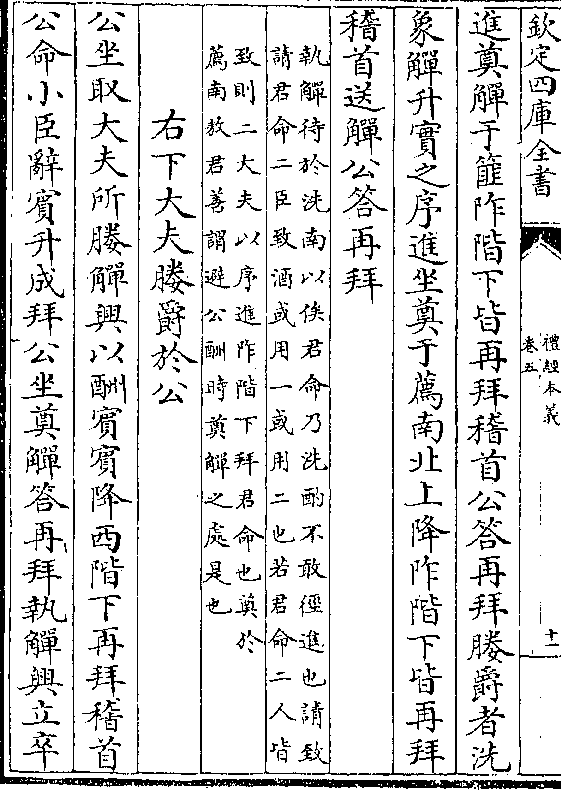 欽定四庫全書
禮經本義
卷五
十一
進奠觶于篚阼階下皆再拜稽首公答再拜媵爵者洗
象觶升實之序進坐奠于薦南北上降阼階下皆再拜
稽首送觶公答再拜
執觶待於洗南以俟君命乃洗酌不敢徑進也請致
請君命二臣致酒或用一或用二也若君命二人皆
致則二大夫以序進阼階下拜君命也奠於
薦南敖君善謂避公酬時奠觶之處是也
右下大夫媵爵於公
公坐取大夫所媵觶興以酬賓賓降西階下再拜稽首
公命小臣辭賓升成拜公坐奠觶答再拜執觶興立卒